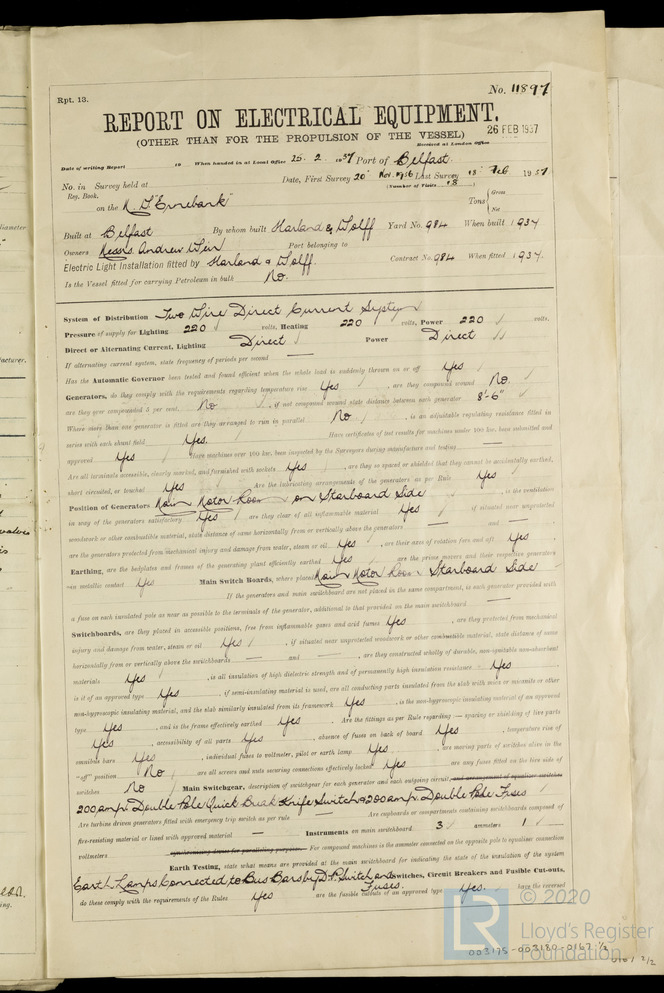 No. 11897
Rpt. 13.
REPORT ON ELECTRICAL EQUIPMENT.
(OTHER THAN FOR THE PROPULSION OF THE VESSEL)
26 FEB 1937
Received at London Office
Date of writing Report 19 When handed in at Local Office 25. 2. 1937 Port of Belfast.
No. in Survey held at Date, First Survey 20 Nov. 1936 Last Survey 18 Feb 1937
Reg. Book. (Number of Visits 18)
on the Tons { Gross
Net
Built at Belfast By whom built Harland & Wolff Yard No. 984 When built 1937
Owners Messrs. Andrew Weir Port belonging to
Electric Light Installation fitted by Harland & Wolff. Contract No. 984 When fitted 1937.
Is the Vessel fitted for carrying Petroleum in bulk No.
System of Distribution Two Wire Direct Current System
Pressure of supply for Lighting 220 volts, Heating 220 volts, Power 220 volts.
Direct or Alternating Current, Lighting Direct Power Direct
If alternating current system, state frequency of periods per second —
Has the Automatic Governor been tested and found efficient when the whole load is suddenly thrown on or off Yes
Generators, do they comply with the requirements regarding temperature rise Yes, are they compound wound No.
are they over compounded 5 per cent. No, if not compound wound state distance between each generator 8'-6"
Where more than one generator is fitted are they arranged to run in parallel No, is an adjustable regulating resistance fitted in
series with each shunt field Yes. Have certificates of test results for machines under 100 kw. been submitted and
approved Yes Have machines over 100 kw. been inspected by the Surveyors during manufacture and testing —
Are all terminals accessible, clearly marked, and furnished with sockets Yes, are they so spaced or shielded that they cannot be accidentally earthed,
short circuited, or touched Yes Are the lubricating arrangements of the generators as per Rule Yes
Position of Generators Main Motor Room on Starboard Side, is the ventilation
in way of the generators satisfactory Yes are they clear of all inflammable material Yes, if situated near unprotected
woodwork or other combustible material, state distance of same horizontally from or vertically above the generators — and —,
are the generators protected from mechanical injury and damage from water, steam or oil Yes, are their axes of rotation fore and aft Yes.
Earthing, are the bedplates and frames of the generating plant efficiently earthed Yes are the prime movers and their respective generators
in metallic contact Yes Main Switch Boards, where placed Main Motor Room Starboard Side
If the generators and main switchboard are not placed in the same compartment, is each generator provided with
a fuse on each insulated pole as near as possible to the terminals of the generator, additional to that provided on the main switchboard —
Switchboards, are they placed in accessible positions, free from inflammable gases and acid fumes Yes, are they protected from mechanical
injury and damage from water, steam or oil Yes, if situated near unprotected woodwork or other combustible material, state distance of same
horizontally from or vertically above the switchboards — and —, are they constructed wholly of durable, non-ignitable non-absorbent
materials Yes, is all insulation of high dielectric strength and of permanently high insulation resistance Yes,
is it of an approved type Yes, if semi-insulating material is used, are all conducting parts insulated from the slab with mica or micanite or other
non-hygroscopic insulating material, and the slab similarly insulated from its framework Yes, is the non-hygroscopic insulating material of an approved
type Yes, and is the frame effectively earthed Yes. Are the fittings as per Rule regarding:— spacing or shielding of live parts
Yes, accessibility of all parts Yes, absence of fuses on back of board Yes, temperature rise of
omnibus bars Yes, individual fuses to voltmeter, pilot or earth lamp Yes, are moving parts of switches alive in the
"off" position No are all screws and nuts securing connections effectively locked Yes are any fuses fitted on the live side of
switches No Main Switchgear, description of switchgear for each generator and each outgoing circuit, and arrangement of equaliser switches
200 amp. Double Pole Quick Break Knife Switch & 200 amp. Double Pole Fuses
Are turbine driven generators fitted with emergency trip switch as per rule — Are cupboards or compartments containing switchboards composed of
fire-resisting material or lined with approved material — Instruments on main switchboard 3 ammeters 1
voltmeters synchronising device for paralleling purposes. For compound machines is the ammeter connected on the opposite pole to equaliser connection
Earth Testing, state what means are provided at the main switchboard for indicating the state of the insulation of the system
Earth Lamps Connected to Bus Bars by D.P. Switch and Fuses. Switches, Circuit Breakers and Fusible Cut-outs,
do these comply with the requirements of the Rules Yes are the fusible cutouts of an approved type Yes. have the reversed
© 2020
LR
Lloyd's Register
Foundation
003175-003180-0167 1/2